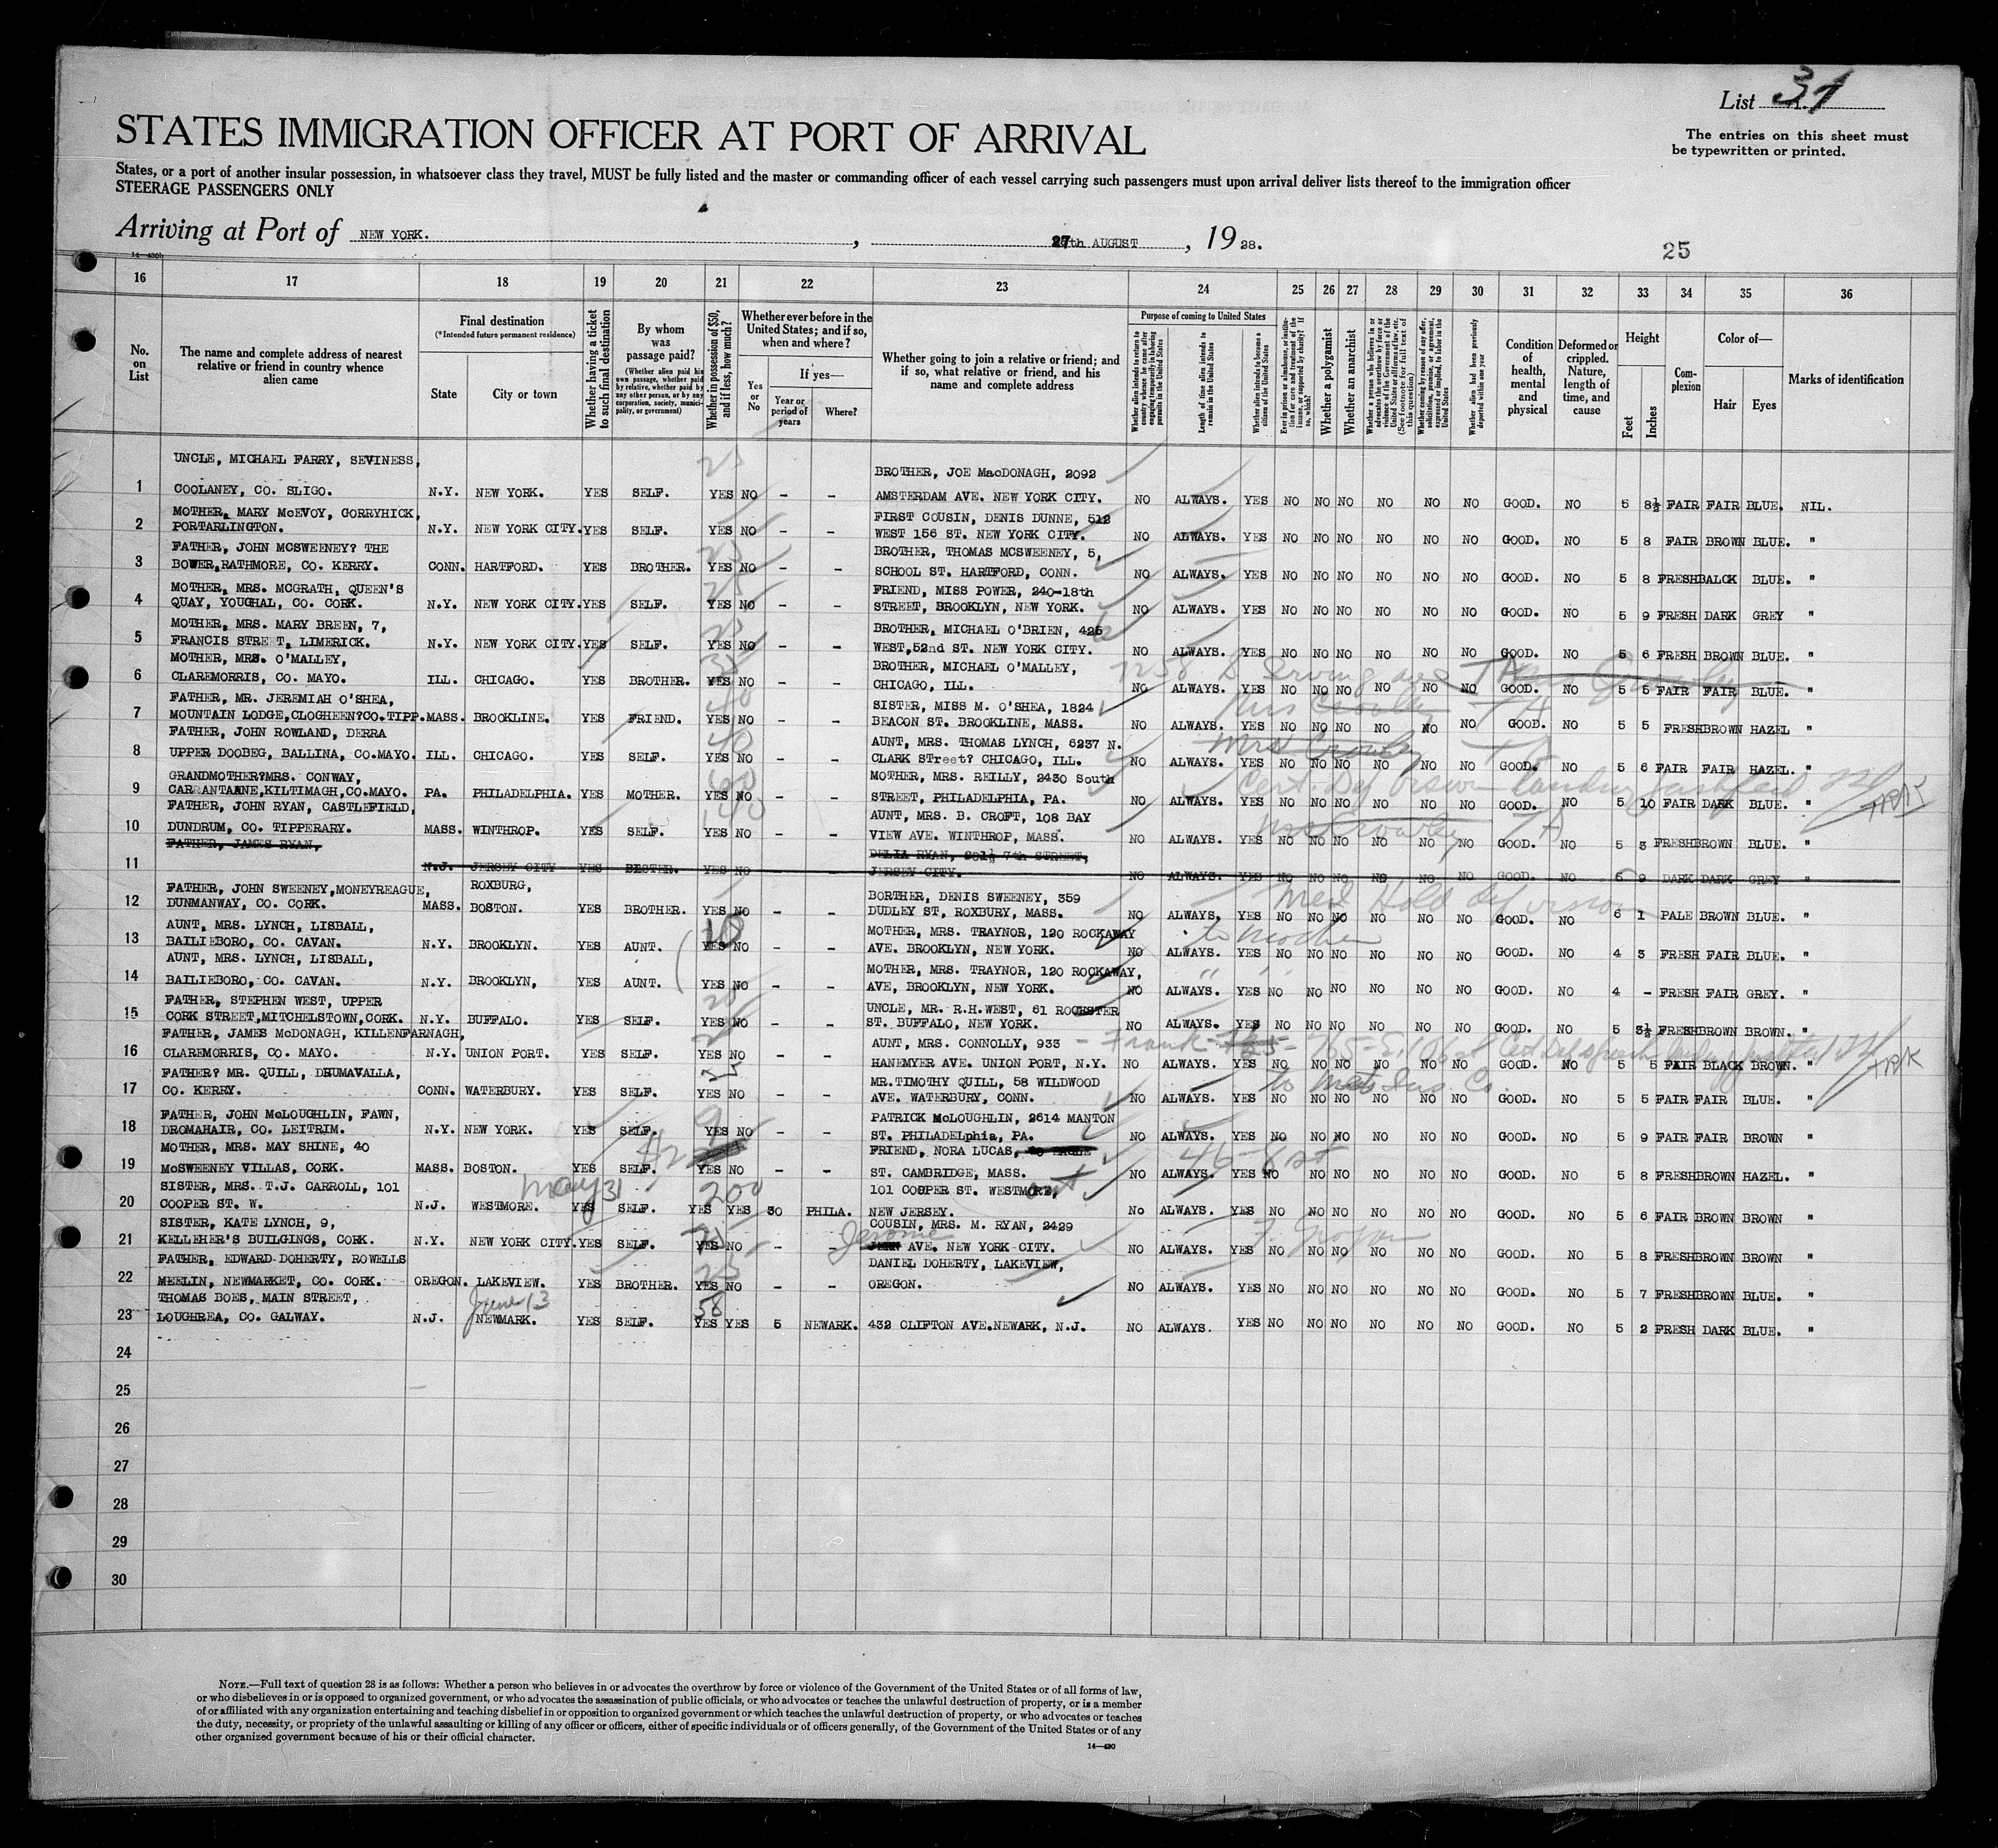 List 31
STATES IMMIGRATION OFFICER AT PORT OF ARRIVAL
The entries on this sheet must
be typewritten or printed.
States, or a port of another insular possession, in whatsoever class they travel, MUST be fully listed and the master or commanding officer of each vessel carrying such passengers must upon arrival deliver lists thereof to the immigration officer
STEERAGE PASSENGERS ONLY
Arriving at Port of NEW YORK. , 27th AUGUST , 19 28.
25
14—430b
16 17 18 19 20 21 22 23 24 25 26 27 28 29 30 31 32 33 34 35 36
No. on List
The name and complete address of nearest relative or friend in country whence alien came
Final destination
(*Intended future permanent residence)
State
City or town
Whether having a ticket to such final destination
By whom was passage paid?
(Whether alien paid his own passage, whether paid by relative, whether paid by any other person, or by any corporation, society, municipality, or government)
Whether in possession of $50, and if less, how much?
Whether ever before in the United States; and if so, when and where?
Yes or No
If yes—
Year or period of years
Where?
Whether going to join a relative or friend; and if so, what relative or friend, and his name and complete address
Purpose of coming to United States
Whether alien intends to return to country whence he came after engaging temporarily in laboring pursuits in the United States
Length of time alien intends to remain in the United States
Whether alien intends to become a citizen of the United States
Ever in prison or almshouse, or institution for care and treatment of the insane, or supported by charity? If so, which?
Whether a polygamist
Whether an anarchist
Whether a person who believes in or advocates the overthrow by force or violence of the Government of the United States or all forms of law, etc. (See footnote for full text of this question)
Whether coming by reason of any offer, solicitation, promise, or agreement, expressed or implied, to labor in the United States
Whether alien had been previously deported within one year
Condition of health, mental and physical
Deformed or crippled. Nature, length of time, and cause
Height
Feet
Inches
Complexion
Color of—
Hair
Eyes
Marks of identification
UNCLE, MICHAEL FARRY, SEVINESS, BROTHER, JOE MacDONAGH, 2092
1 COOLANEY, CO. SLIGO. N.Y. NEW YORK. YES SELF. YES NO - - AMSTERDAM AVE. NEW YORK CITY. NO ALWAYS. YES NO NO NO NO NO NO GOOD. NO 5 8½ FAIR FAIR BLUE. NIL.
MOTHER, MARY McEVOY, GORRYHICK, FIRST COUSIN, DENIS DUNNE, 512
2 PORTARLINGTON. N.Y. NEW YORK CITY. YES SELF. YES NO - - WEST 156 ST. NEW YORK CITY. NO ALWAYS. YES NO NO NO NO NO NO GOOD. NO 5 8 FAIR BROWN BLUE. "
FATHER, JOHN MCSWEENEY? THE BROTHER, THOMAS MCSWEENEY, 5,
3 BOWER,RATHMORE, CO. KERRY. CONN. HARTFORD. YES BROTHER. YES NO - - SCHOOL ST. HARTFORD, CONN. NO ALWAYS. YES NO NO NO NO NO NO GOOD. NO 5 8 FRESH BALCK BLUE. "
MOTHER, MRS. MCGRATH, QUEEN'S FRIEND, MISS POWER, 240-18th
4 QUAY, YOUGHAL, CO. CORK. N.Y. NEW YORK CITY. YES SELF. YES NO - - STREET, BROOKLYN, NEW YORK. NO ALWAYS. YES NO NO NO NO NO NO GOOD. NO 5 9 FRESH DARK GREY "
MOTHER, MRS. MARY BREEN, 7, BROTHER, MICHAEL O'BRIEN, 426
5 FRANCIS STREET, LIMERICK. N.Y. NEW YORK CITY. YES SELF. YES NO - - WEST,52nd ST. NEW YORK CITY. NO ALWAYS. YES NO NO NO NO NO NO GOOD. NO 5 6 FRESH BROWN BLUE. "
MOTHER, MRS. O'MALLEY, BROTHER, MICHAEL O'MALLEY, 7258 S Irving ave TA
6 CLAREMORRIS, CO. MAYO. ILL. CHICAGO. YES BROTHER. YES NO - - CHICAGO, ILL. NO ALWAYS. YES NO NO NO NO NO NO GOOD. NO 5 5 FAIR FAIR BLUE. "
FATHER, MR. JEREMIAH O'SHEA, SISTER, MISS M. O'SHEA, 1824 Mrs Crowley TA
7 MOUNTAIN LODGE,CLOGHEEN?CO.TIPP. MASS. BROOKLINE. YES FRIEND. YES NO - - BEACON ST. BROOKLINE, MASS. NO ALWAYS. YES NO NO NO NO NO NO GOOD. NO 5 5 FRESH BROWN HAZEL "
FATHER, JOHN ROWLAND, DERRA AUNT, MRS. THOMAS LYNCH, 6237 N. Mrs Crowley TA
8 UPPER DOOBEG, BALLINA, CO.MAYO. ILL. CHICAGO. YES SELF. YES NO - - CLARK STreet? CHICAGO, ILL. NO ALWAYS. YES NO NO NO NO NO NO GOOD. NO 5 6 FAIR FAIR HAZEL. "
GRANDMOTHER?MRS. CONWAY, 60 MOTHER, MRS. REILLY, 2430 South
9 CARRANTAANE,KILTIMAGH,CO.MAYO. PA. PHILADELPHIA. YES MOTHER. YES NO - - STREET, PHILADELPHIA, PA. NO ALWAYS. YES NO NO NO NO NO NO GOOD. NO 5 10 FAIR DARK BLUE. "
FATHER, JOHN RYAN, CASTLEFIELD, AUNT, MRS. B. CROFT, 108 BAY Mrs Crowley TA
10 DUNDRUM, CO. TIPPERARY. MASS. WINTHROP. YES SELF. YES NO - - VIEW AVE. WINTHROP, MASS. NO ALWAYS. YES NO NO NO NO NO NO GOOD. NO 5 3 FRESH BROWN BLUE. "
FATHER, JAMES RYAN, DELIA RYAN, 201½ 7th STREET,
11 N.J. JERSEY CITY YES SISTER. YES NO JERSEY CITY. NO ALWAYS. YES NO NO NO NO NO NO GOOD. NO 5 9 DARK DARK GREY "
FATHER, JOHN SWEENEY,MONEYREAGUE, ROXBURG, BORTHER, DENIS SWEENEY, 359 Med Hold
12 DUNMANWAY, CO. CORK. MASS. BOSTON. YES BROTHER. YES NO - - DUDLEY ST, ROXBURY, MASS. NO ALWAYS. YES NO NO NO NO NO NO GOOD. NO 6 1 PALE BROWN BLUE. "
AUNT, MRS. LYNCH, LISBALL, 10 MOTHER, MRS. TRAYNOR, 120 ROCKAWAY to mother
13 BAILIEBORO, CO. CAVAN. N.Y. BROOKLYN. YES AUNT. YES NO - - AVE. BROOKLYN, NEW YORK. NO ALWAYS. YES NO NO NO NO NO NO GOOD. NO 4 3 FRESH FAIR BLUE. "
AUNT, MRS. LYNCH, LISBALL, MOTHER, MRS. TRAYNOR, 120 ROCKAWAY, " "
14 BAILIEBORO, CO. CAVAN. N.Y. BROOKLYN, YES AUNT. YES NO - - AVE, BROOKLYN, NEW YORK. NO ALWAYS. YES NO NO NO NO NO NO GOOD. NO 4 - FRESH FAIR GREY. "
FATHER, STEPHEN WEST, UPPER UNCLE, MR. R.H.WEST, 61 ROCHSTER
15 CORK STREET,MITCHELSTOWN,CORK. N.Y. BUFFALO. YES SELF. YES NO - - ST. BUFFALO, NEW YORK. NO ALWAYS. YES NO NO NO NO NO NO GOOD. NO 5 3½ FRESH BROWN BROWN. "
FATHER, JAMES McDONAGH, KILLENFARNAGH, AUNT, MRS. CONNOLLY, 933 - Frank
16 CLAREMORRIS, CO. MAYO. N.Y. UNION PORT. YES SELF. YES NO - - HANEMYER AVE. UNION PORT, N.Y. NO ALWAYS. YES NO NO NO NO NO NO GOOD. NO 5 5 FAIR BLACK BROWN. "
FATHER? MR. QUILL, DRUMAVALLA, MR.TIMOTHY QUILL, 58 WILDWOOD
17 CO. KERRY. CONN. WATERBURY. YES SELF. YES NO - - AVE. WATERBURY, CONN. NO ALWAYS. YES NO NO NO NO NO NO GOOD. NO 5 5 FAIR FAIR BLUE. "
FATHER, JOHN McLOUGHLIN, FAWN, PATRICK McLOUGHLIN, 2614 MANTON
18 DROMAHAIR, CO. LEITRIM. N.Y. NEW YORK. YES SELF. YES NO - - ST. PHILADELphia, PA. NO ALWAYS. YES NO NO NO NO NO NO GOOD. NO 5 9 FAIR FAIR BROWN "
MOTHER, MRS. MAY SHINE, 40 FRIEND, NORA LUCAS, 46-8 st
19 McSWEENEY VILLAS, CORK. MASS. BOSTON. YES SELF. YES NO - - ST. CAMBRIDGE, MASS. NO ALWAYS. YES NO NO NO NO NO NO GOOD. NO 5 8 FRESH BROWN HAZEL. "
SISTER, MRS. T.J. CARROLL, 101 May 31 200 101 COOPER ST. WESTMORE, ont
20 COOPER ST. W. N.J. WESTMORE. YES SELF. YES YES 30 PHILA. NEW JERSEY. No ALWAYS. YES NO NO NO NO NO NO GOOD. NO 5 6 FAIR BROWN BROWN "
SISTER, KATE LYNCH, 9, COUSIN, MRS. M. RYAN, 2429
21 KELLEHER'S BUILGINGS, CORK. N.Y. NEW YORK CITY. YES SELF. YES NO - - Jerome AVE. NEW YORK CITY. NO ALWAYS. YES NO NO NO NO NO NO GOOD. NO 5 8 FRESH BROWN BROWN "
FATHER, EDWARD DOHERTY, ROWELLS 25 DANIEL DOHERTY, LAKEVIEW,
22 MEELIN, NEWMARKET, CO. CORK. OREGON. LAKEVIEW. YES BROTHER. YES NO - - OREGON. NO ALWAYS. YES NO NO NO NO NO NO GOOD. NO 5 7 FRESH BROWN BLUE. "
THOMAS BOES, MAIN STREET, June 13 58
23 LOUGHREA, CO. GALWAY. N.J. NEWMARK. YES SELF. YES YES 5 NEWARK. 432 CLIFTON AVE.NEWARK, N.J. NO ALWAYS. YES NO NO NO NO NO NO GOOD. NO 5 2 FRESH DARK BLUE. "
24
25
26
27
28
29
30
NOTE.—Full text of question 28 is as follows: Whether a person who believes in or advocates the overthrow by force or violence of the Government of the United States or of all forms of law,
or who disbelieves in or is opposed to organized government, or who advocates the assassination of public officials, or who advocates or teaches the unlawful destruction of property, or is a member
of or affiliated with any organization entertaining and teaching disbelief in or opposition to organized government or which teaches the unlawful destruction of property, or who advocates or teaches
the duty, necessity, or propriety of the unlawful assaulting or killing of any officer or officers, either of specific individuals or of officers generally, of the Government of the United States or of any
other organized government because of his or their official character.
14—430